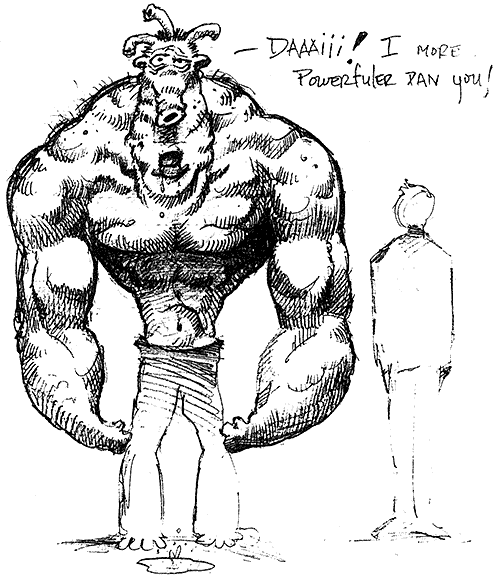 - DAAAiii! I MORE
POWERFULER DAN you!